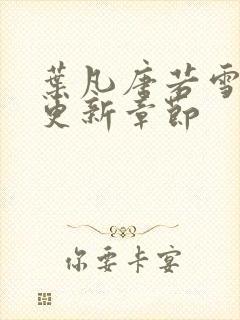 葉凡唐若雪
更新章節
你要卡宴